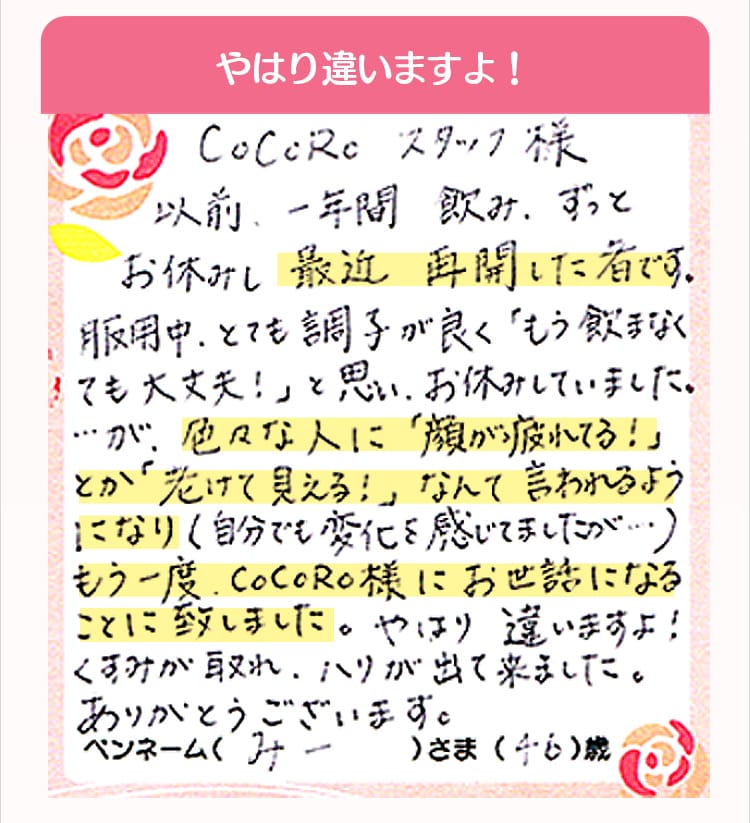 やはり違いますよ！
CoCoRo スタッフ様
以前、一年間 飲み、ずっと
お休みし 最近 再開した者です。
服用中、とても調子が良く「もう飲まなく
ても大丈夫！」と思い、お休みしていました。
…が、色々な人に「顔が疲れてる！」
とか「老けて見える！」なんて言われるよう
になり（自分でも変化を感じてましたが…）
もう一度、CoCoRo様にお世話になる
ことに致しました。やはり 違いますよ！
くすみが取れ、ハリが出て来ました。
ありがとうございます。
ペンネーム（ みー ）さま（46）歳